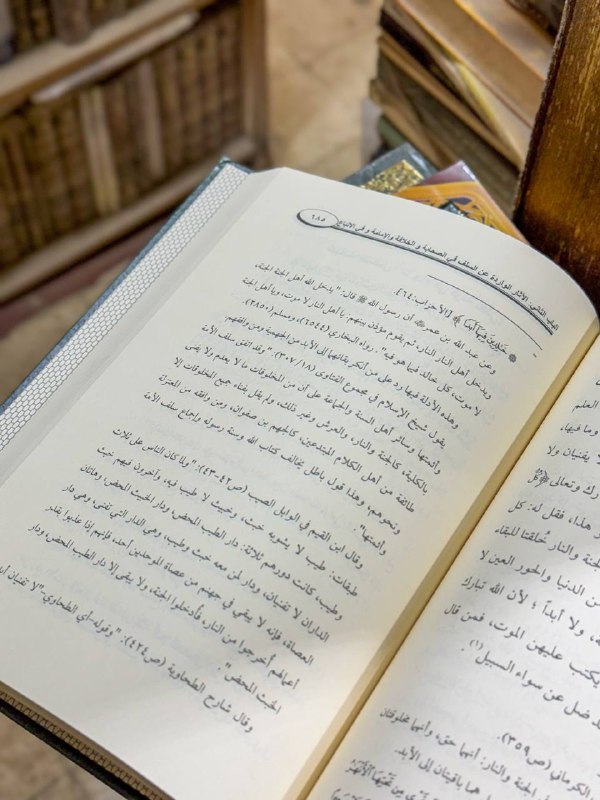 الباب الثاني: الآثار الواردة عن السلف في الصحابة و الخلافة والإمامة و في الاتباع
٦٨٥
خَٰلِدِينَ فِيهَآ أَبَدٗا﴾ [الأحزاب: ٦٤].
وعن عبد الله بن عمر أن رسول الله ﷺ قال: "يدخل الله أهل الجنة الجنة،
ويدخل أهل النار النار، ثم يقوم مؤذن بينهم: يا أهل النار لا موت، ويا أهل الجنة
لا موت، كل خالد فيما هو فيه". رواه البخاري (٦٥٤٤)، ومسلم (٢٨٥٠).
وهذه الأدلة فيها رد على من أنكر بقائهما إلى الأبد من الجهمية ومن وافقهم.
يقول شيخ الإسلام في مجموع الفتاوى (٣٠٧/١٨): "وقد اتفق سلف الأمة
وأئمتها وسائر أهل السنة والجماعة على أن من المخلوقات ما لا يعدم ولا يفنى
بالكلية، كالجنة والنار، والعرش وغير ذلك، ولم يقل بفناء جميع المخلوقات إلا
طائفة من أهل الكلام المبتدعين، كالجهم بن صفوان، ومن وافقه من المعتزلة
ونحوهم، وهذا قول باطل يخالف كتاب الله وسنة رسوله وإجماع سلف الأمة
وأئمتها".
وقال ابن القيم في الوابل الصيب (ص٤٢-٤٣): "ولما كان الناس على ثلاث
طبقات: طيب لا يشوبه خبث، وخبيث لا طيب فيه، وآخرون فيهم خبث
وطيب، كانت دورهم ثلاثة: دار الطيب المحض، ودار الخبيث المحض، وهاتان
الداران لا تفنيان، ودار لمن معه خبث وطيب، وهي النار التي تفنى، وهي دار
العصاة، فإنه لا يبقى في جهنم من عصاة الموحدين أحد، فإنهم إذا عذبوا بقدر
أعمالهم أخرجوا من النار، فأدخلوا الجنة، ولا يبقى إلا دار الطيب المحض، ودار
الخبث المحض".
وقال شارح الطحاوية (ص٤٢٤): "وقوله-أي الطحاوي-"لا تفنيان
العلم
وما فيها،
لا يفنيان ولا
رك وتعالى ﴿كُلُّ
هذا، فقل له: كل
الجنة والنار خُلقتا للبقاء
من الدنيا والحور العين لا
ولا أبداً ؛ لأن الله تبارك
يكتب عليهن الموت، فمن قال
ضل عن سواء السبيل (١).
الكرماني (ص٣٥٩).
الجنة والنار: أنهما حق، وأنهما مخلوقتان
هما باقيتان إلى الأبد.
مِن تَحْتِهَا الْأَنْهَٰرُ